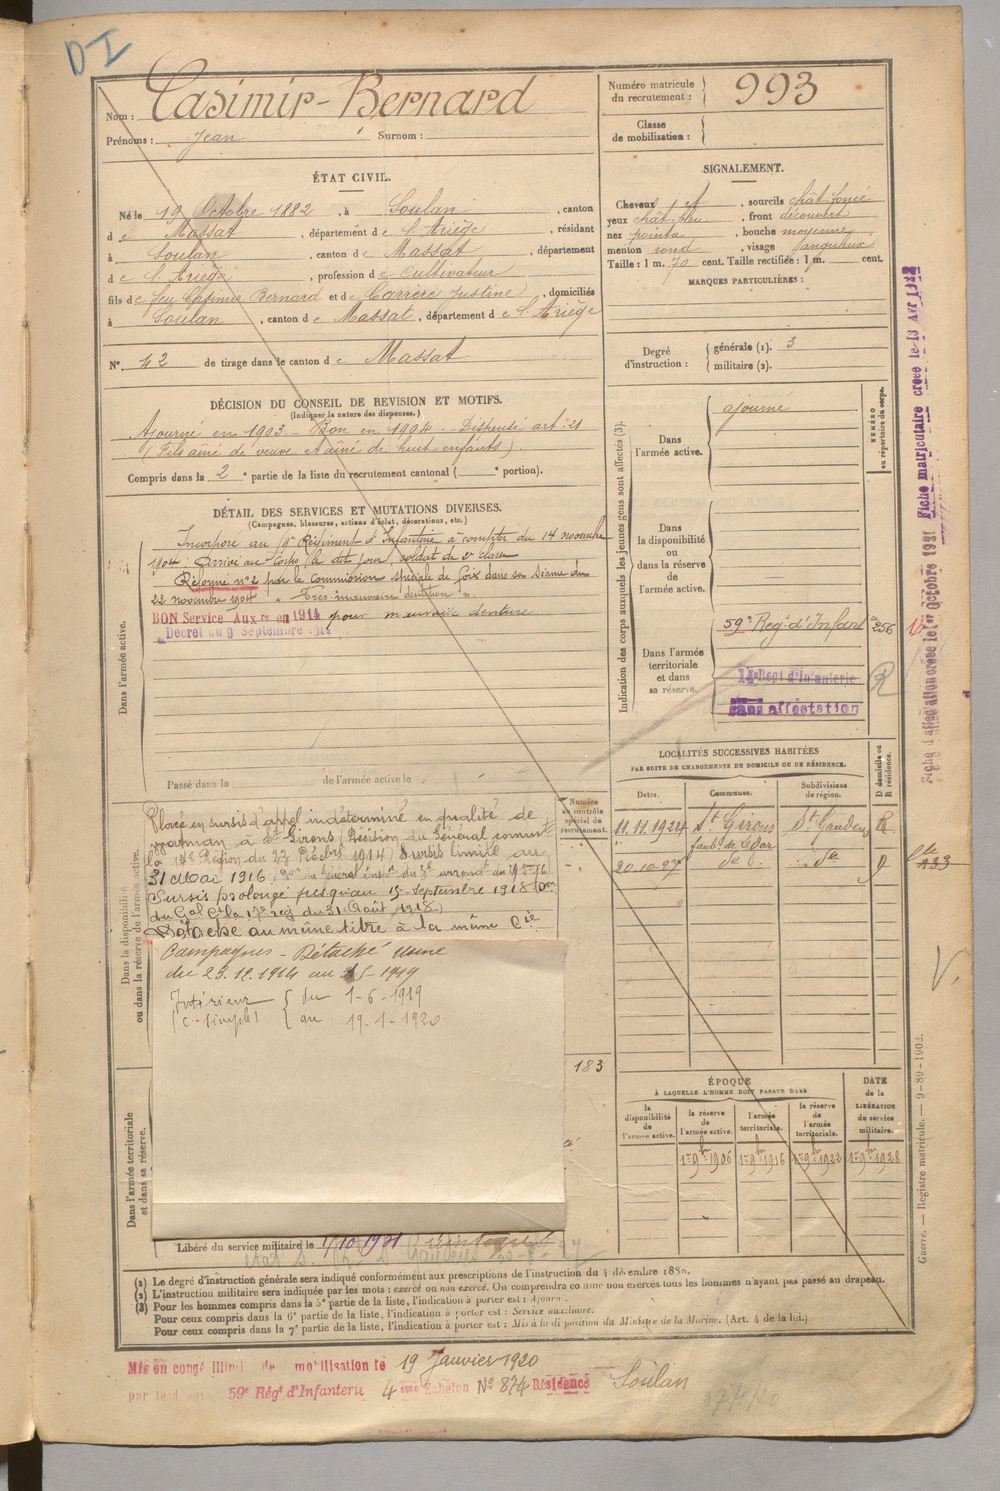 DI
Nom : Casimir-Bernard
Prénoms : Jean Surnom :
Numéro matricule du recrutement : 993
Classe de mobilisation :
ÉTAT CIVIL.
Né le 19 Octobre 1882, à Soulan, canton
d e Massat, département de l'Ariège, résidant
à Soulan, canton de Massat, département
de l'Ariège, profession de Cultivateur
fils de feu Casimir Bernard et de Carrère Justine, domiciliés
à Soulan, canton de Massat, département de l'Ariège
N° 42 de tirage dans le canton de Massat
SIGNALEMENT.
Cheveux, sourcils chât foncé
yeux chât bleu, front découvert
nez pointu, bouche moyenne
menton rond, visage
Taille : 1 m. 70 cent. Taille rectifiée : 1 m. cent.
MARQUES PARTICULIÈRES :
Degré d'instruction : générale (1). 3
militaire (2).
DÉCISION DU CONSEIL DE REVISION ET MOTIFS.
(Indiquer la nature des dispenses.)
Ajourné en 1903 - Bon en 1904 - Dispensé art. 21
(fils aîné de veuve et aîné de huit enfants)
Compris dans la 2e partie de la liste du recrutement cantonal ( e portion).
DÉTAIL DES SERVICES ET MUTATIONS DIVERSES.
(Campagnes, blessures, actions d'éclat, décorations, etc.)
Incorporé au Régiment d'Infanterie à compter du 14 novembre
1904. Arrivé au Corps le dit jour, soldat de 2e classe
Réformé n° 2 par la Commission spéciale de Foix dans sa séance du
22 novembre 1904 "Très mauvaise dentition".
BON Service Auxre en 1914 pour mauvaise denture
Décret du 9 Septembre 1914
Dans l'armée active.
Passé dans la de l'armée active le
Indication des corps auxquels les jeunes gens sont affectés (3).
Dans l'armée active.
ajourné
NUMÉRO au répertoire du corps.
Dans la disponibilité ou dans la réserve de l'armée active.
Dans l'armée territoriale et dans sa réserve.
59e Regt d'Infant 256
Regt d'Infanterie
Sans affectation
R
LOCALITÉS SUCCESSIVES HABITÉES
PAR SUITE DE CHANGEMENTS DE DOMICILE OU DE RÉSIDENCE.
Dates. Communes. Subdivisions de région. D domicile ou R résidence.
11.11.1924 St Girons St Gaudens R
20.10.27 D
Dans la disponibilité ou dans la réserve de l'armée active.
Numéro au contrôle spécial de recrutement.
Placé en sursis d'appel indéterminé en qualité de
à St Girons (Décision du Général commt
la Région du 23 1914) Sursis limité au
31 Mai 1916
Sursis prolongé jusqu'au 15 Septembre 1918
du Gal Ct la 17e rég du 31 Août 1918)
Détaché au même titre à la même Cie
Campagnes - Détaché usine
du 23.12.1914 au 1919
Intérieur du 1-6-1919
(C. simple) au 19-1-1920
183
Dans l'armée territoriale et dans sa réserve.
ÉPOQUE
À LAQUELLE L'HOMME DOIT PASSER DANS
la disponibilité de l'armée active. la réserve de l'armée active. l'armée territoriale. la réserve de l'armée territoriale.
DATE de la LIBÉRATION du service militaire.
1er 9bre 1906 1er 9bre 1916 1er 9bre 1922 1er 9bre 1928
Libéré du service militaire le 1/10 1931
(1) Le degré d'instruction générale sera indiqué conformément aux prescriptions de l'instruction du 4 décembre 1889.
(2) L'instruction militaire sera indiquée par les mots : exercé ou non exercé. On comprendra comme non exercés tous les hommes n'ayant pas passé au drapeau.
(3) Pour les hommes compris dans la 5e partie de la liste, l'indication à porter est : Ajourné.
Pour ceux compris dans la 6e partie de la liste, l'indication à porter est : Service auxiliaire.
Pour ceux compris dans la 7e partie de la liste, l'indication à porter est : Mis à la disposition du Ministre de la Marine. (Art. 4 de la loi.)
Mis en congé illimité de démobilisation le 19 Janvier 1920
par le dépôt 59e Régt d'Infanterie 4eme Échelon N° 874 Résidence Soulan
Fiche matriculaire créée le 13 Avr 1922
Fiche d'affectation créée le 1er Octobre 1921
Guerre. — Registre matricule. — 9-89-1902.